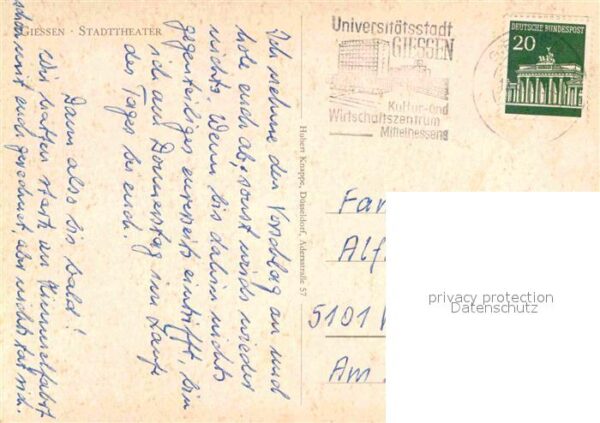 GIESSEN · STADTTHEATER
Ich nehme den Vorschlag an und
hole euch ab, sonst wird's wieder
nichts. Wenn bis dahin nichts
gegenteiliges eintrifft, bin
ich am Donnerstag im Laufe
des Tages bei euch.
Dann also bis bald!
Wir hatten stark an Himmelfahrt
schon mit euch gerechnet, aber nichts tat sich.
Hubert Knappe, Düsseldorf, Adersstraße 57
Universitätsstadt
GIESSEN
Kultur- und
Wirtschaftszentrum
Mittelhessens
DEUTSCHE BUNDESPOST
20
Fam
Alf
5101
Am
privacy protection
Datenschutz